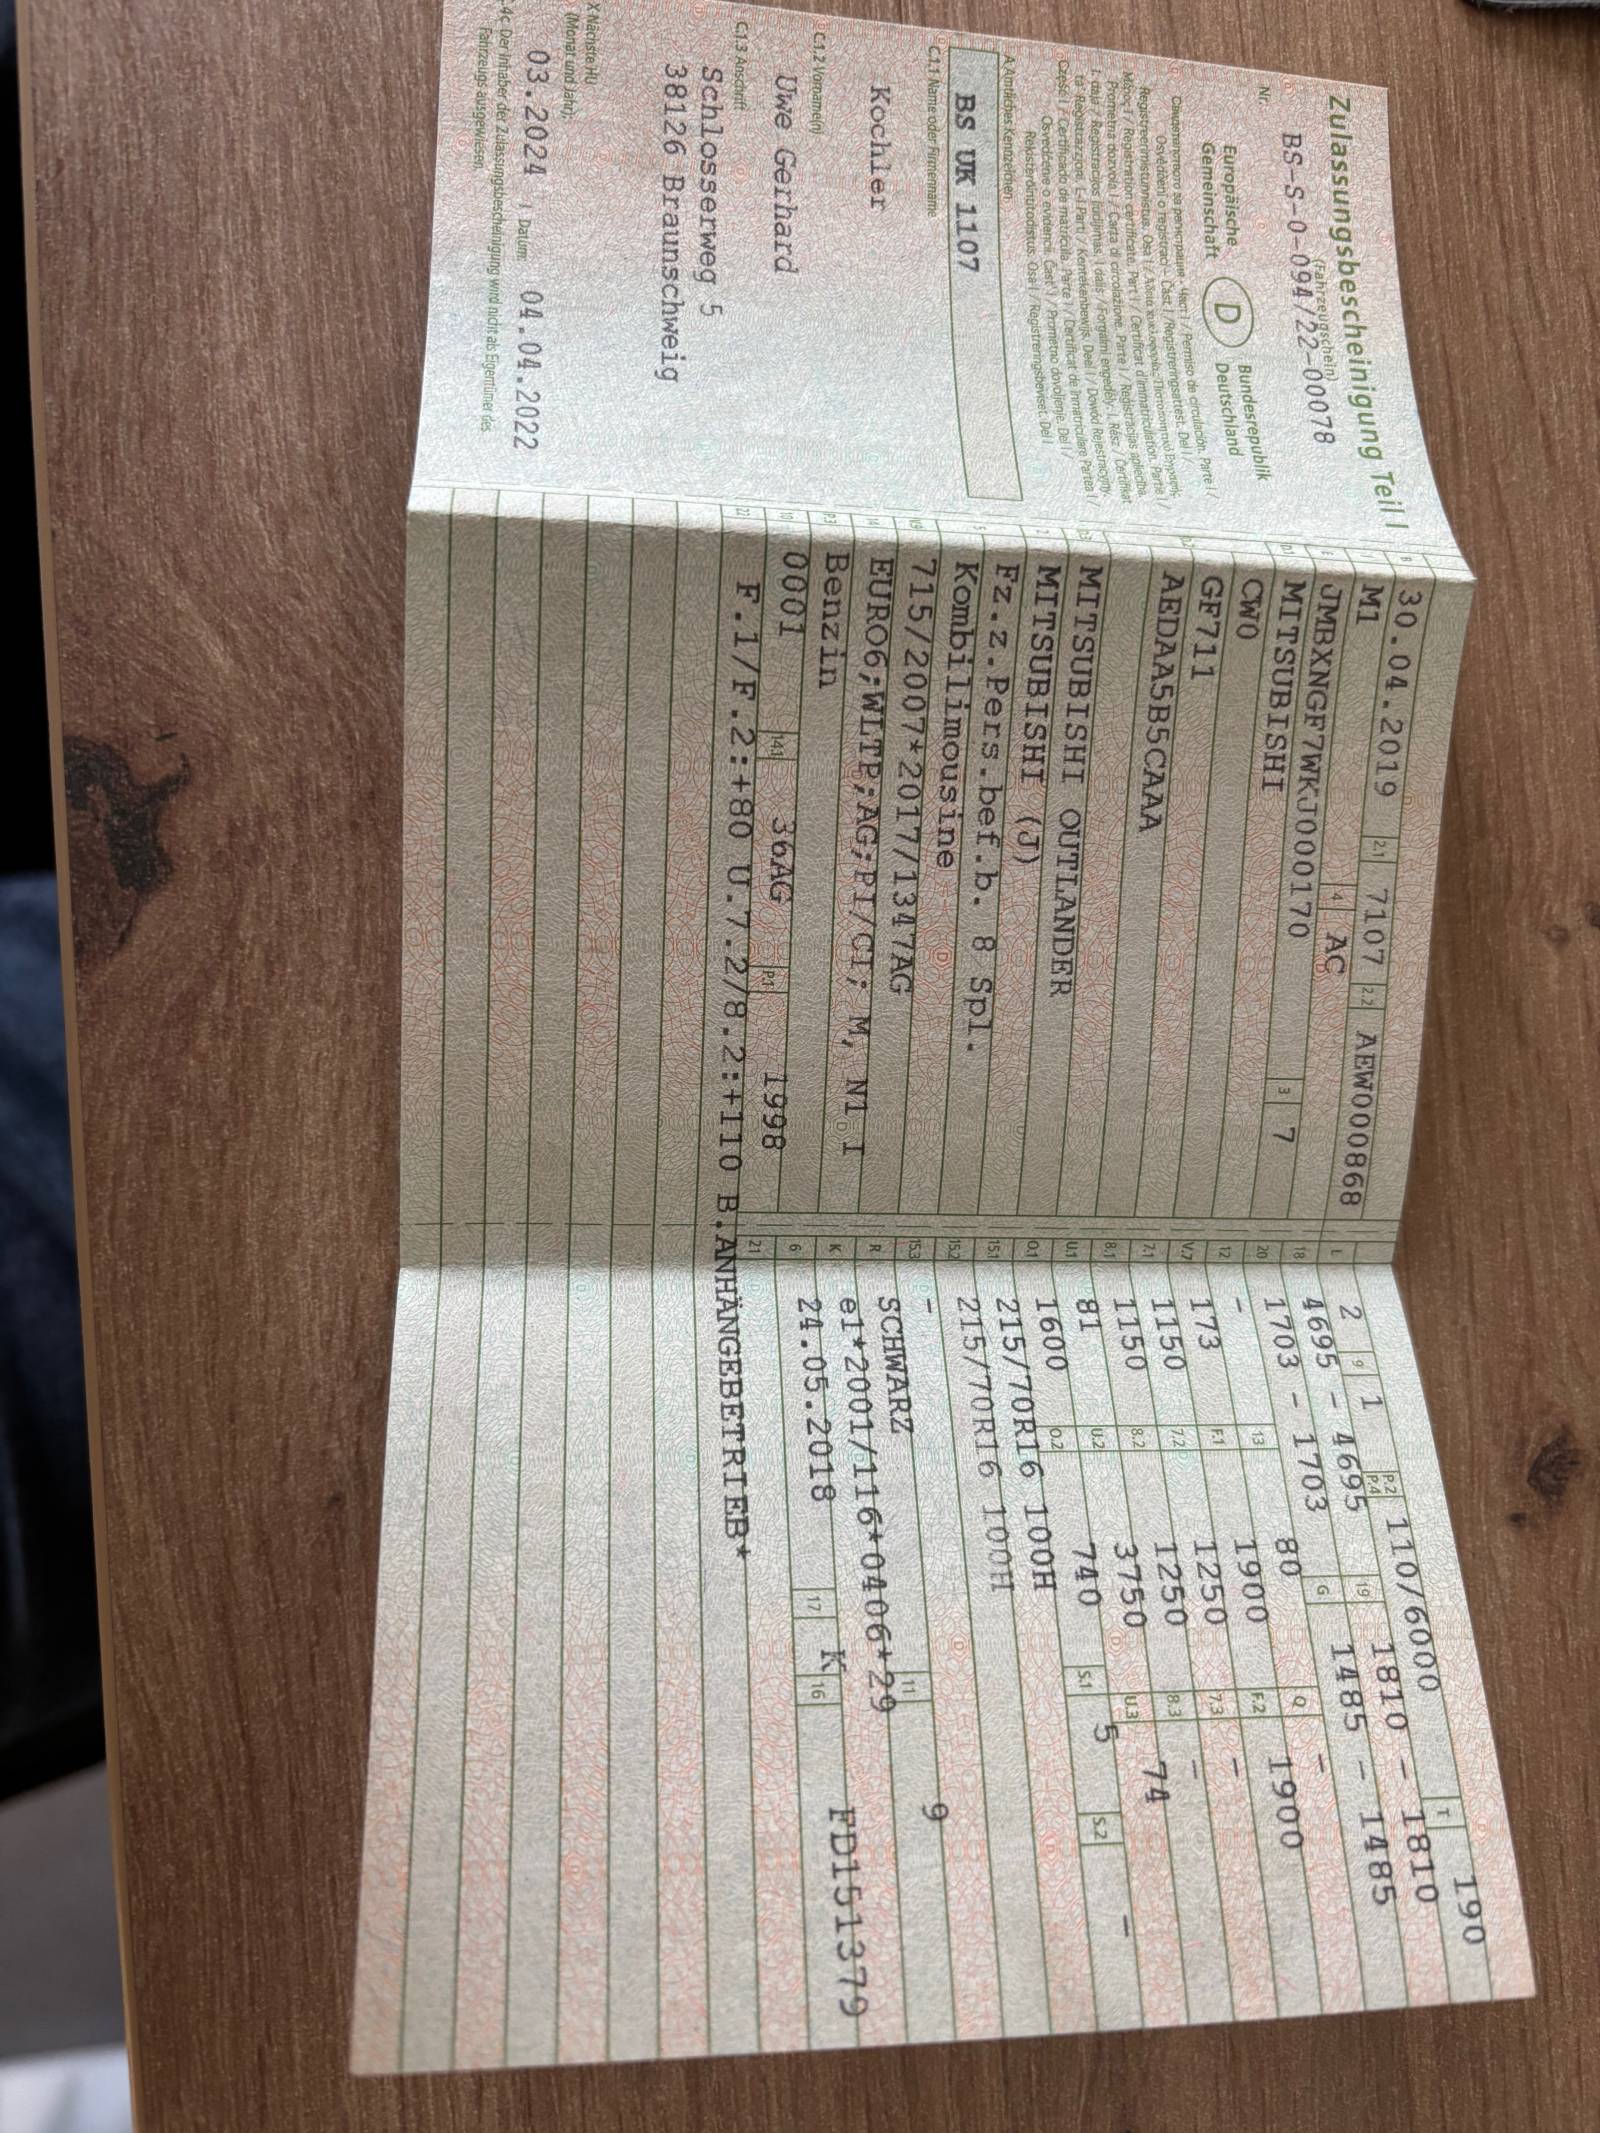 Zulassungsbescheinigung Teil I
(Fahrzeugschein)
Nr. BS-S-0-094/22-00078
Europäische Gemeinschaft
D
Bundesrepublik Deutschland
A Amtliches Kennzeichen
BS UK 1107
C.1.1 Name oder Firmenname
Kochler
C.1.2 Vorname(n)
Uwe Gerhard
C.1.3 Anschrift
Schlosserweg 5
38126 Braunschweig
X Nächste HU
(Monat und Jahr):
03.2024 I Datum: 04.04.2022
C.4c Der Inhaber der Zulassungsbescheinigung wird nicht als Eigentümer des
Fahrzeugs ausgewiesen.
B 30.04.2019 2.1 7107 2.2 AEW000868
J M1 4 AC
E JMBXNGF7WKJ000170 3 7
D.1 MITSUBISHI
CW0
GF711
AEDAA5B5CAAA
D.3 MITSUBISHI OUTLANDER
2 MITSUBISHI (J)
5 Fz.z.Pers.bef.b. 8 Spl.
Kombilimousine
V.9 715/2007*2017/1347AG
14 EURO6;WLTP;AG;PI/CI; M, N1 I
P.3 Benzin
10 0001 14.1 36AG P.1 1998
22 F.1/F.2:+80 U.7.2/8.2:+110 B.ANHÄNGEBETRIEB*
L 2 9 1 P.2 P.4 110/6000 T 190
18 4695 - 4695 19 1810 - 1810
20 1703 - 1703 G 1485 - 1485
12 - 13 80 Q -
V.7 173 F.1 1900 F.2 1900
7.1 1150 7.2 1250 7.3 -
8.1 1150 8.2 1250 8.3 -
U.1 81 U.2 3750 U.3 74
O.1 1600 O.2 740 S.1 5 S.2 -
15.1 215/70R16 100H
15.2 215/70R16 100H
15.3 -
R SCHWARZ 11 9
K e1*2001/116*0406*29
6 24.05.2018 17 K 16 FD151379
21